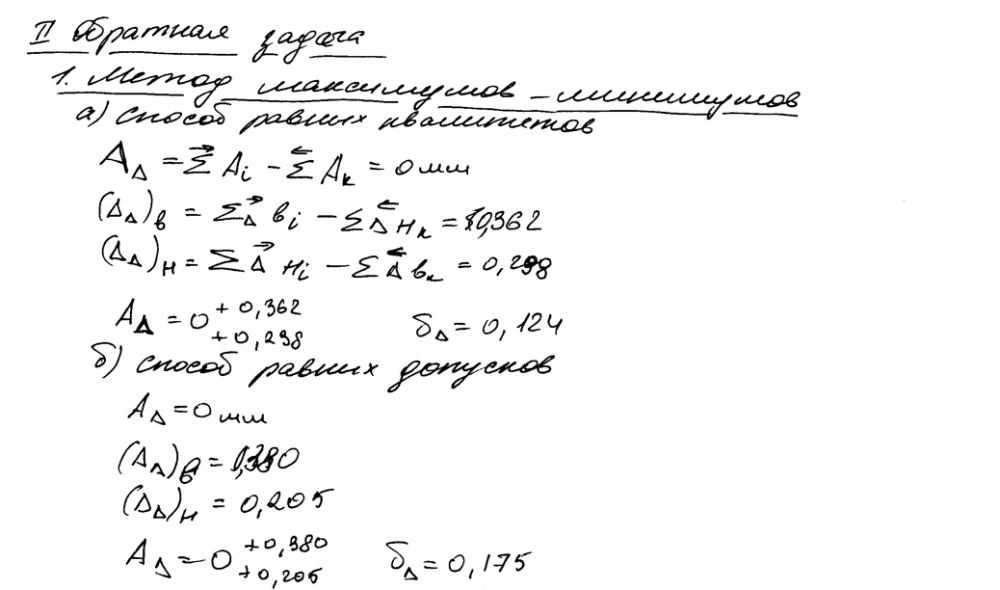 II Обратная задача
1. Метод максимумов – минимумов
а) способ равных квалитетов
A_Δ = Σ→ A_i – Σ← A_k = 0 мм
(Δ_Δ)_в = Σ Δ→ в_i – Σ Δ← н_k = 0,362
(Δ_Δ)_н = Σ Δ→ н_i – Σ Δ← в_k = 0,298
A_Δ = 0 +0,362 +0,238 δ_Δ = 0,124
б) способ равных допусков
A_Δ = 0 мм
(Δ_Δ)_в = 0,380
(Δ_Δ)_н = 0,205
A_Δ = 0 +0,380 +0,205 δ_Δ = 0,175